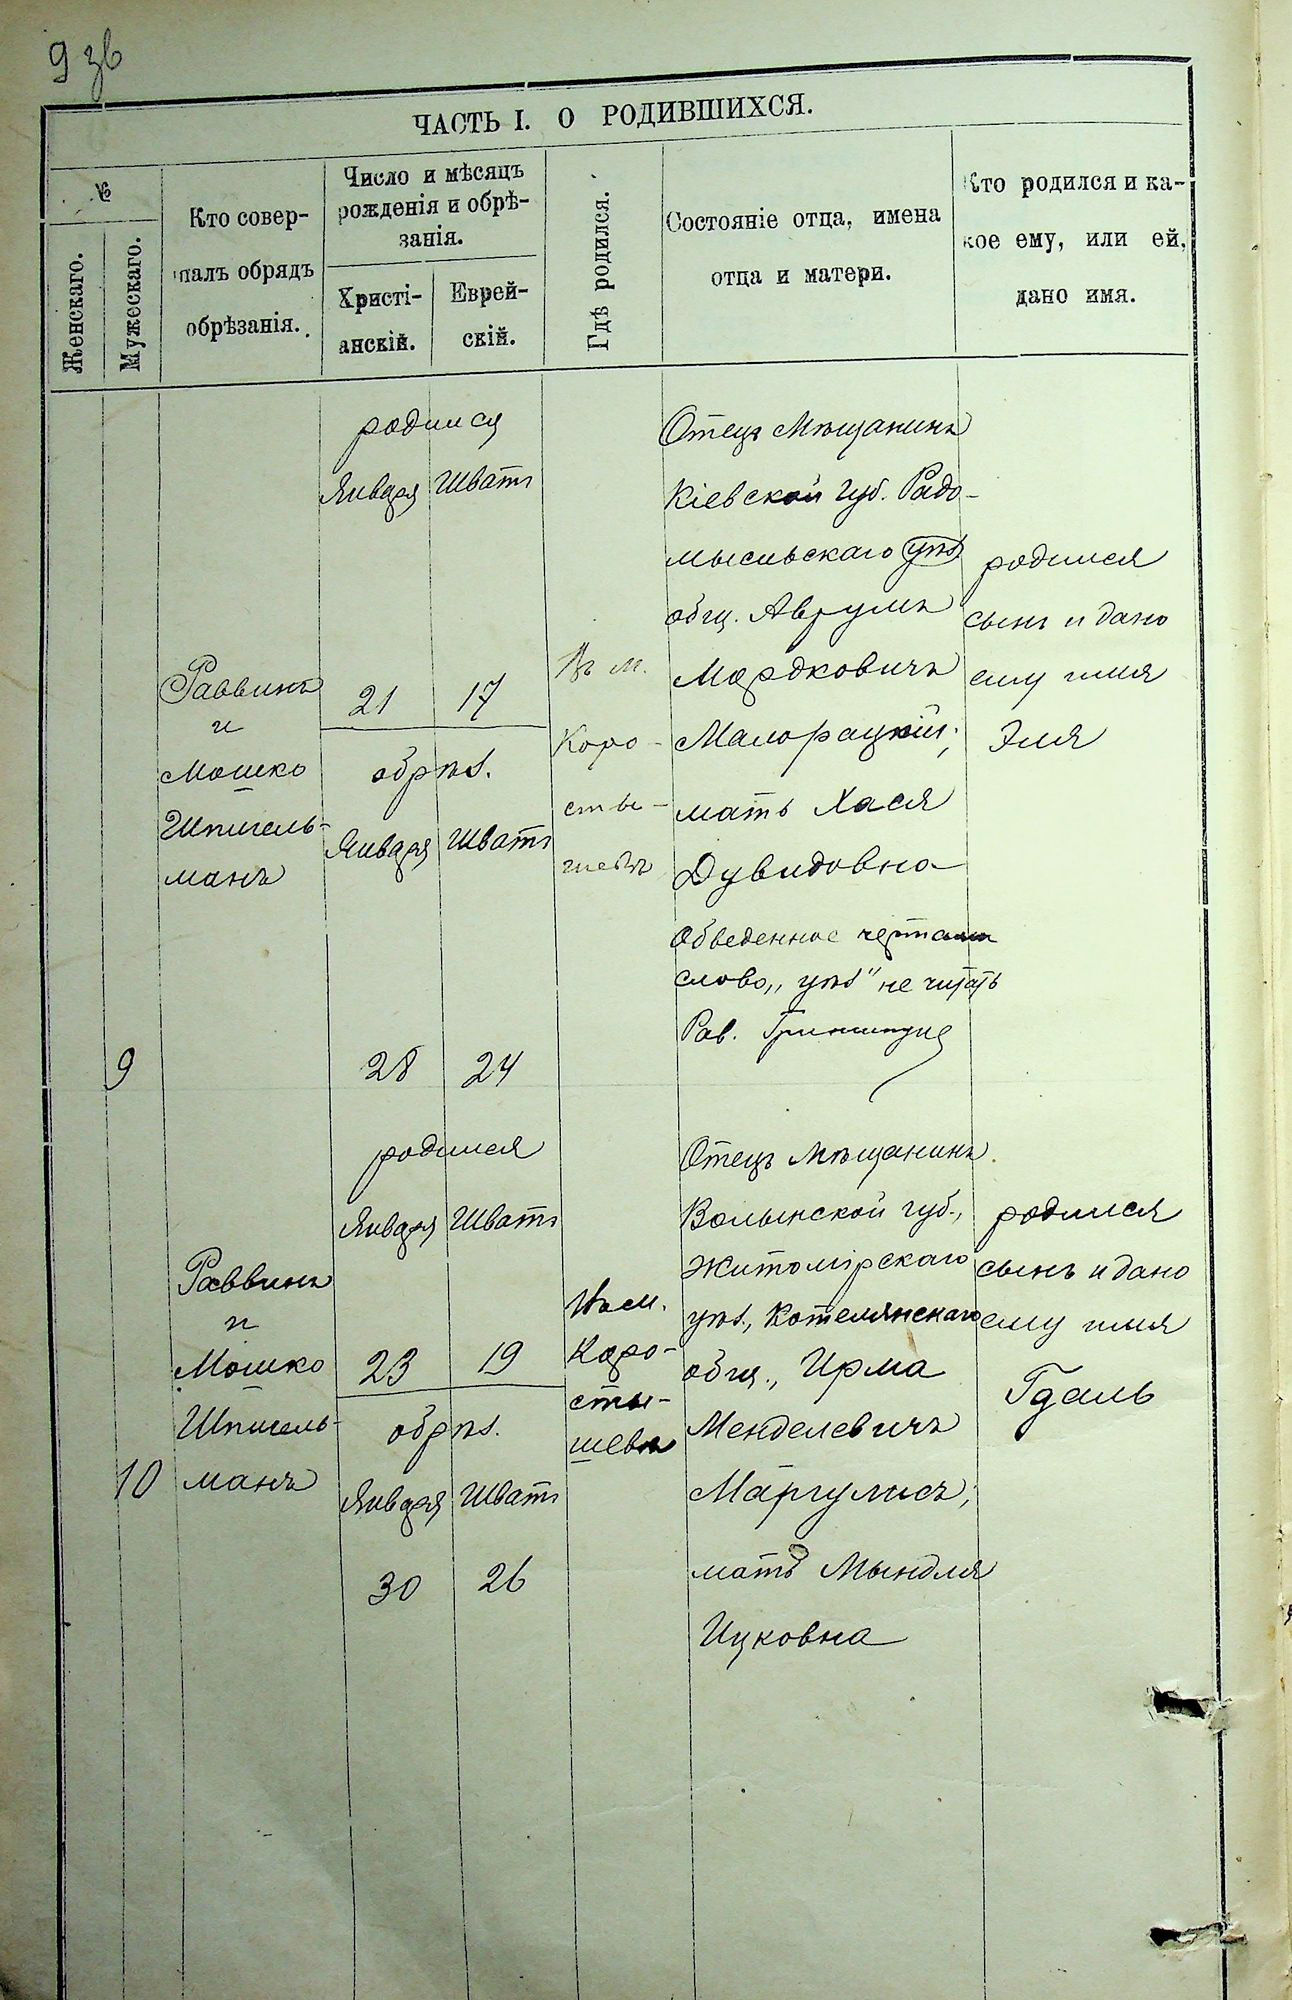 9 зв
ЧАСТЬ I. О РОДИВШИХСЯ.
№
Женскаго.
Мужескаго.
Кто совер-
шалъ обрядъ
обрѣзанія.
Число и мѣсяцъ
рожденія и обрѣ-
занія.
Христі-
анскій.
Еврей-
скій.
Гдѣ родился.
Состояніе отца, имена
отца и матери.
Кто родился и ка-
кое ему, или ей,
дано имя.
9
Раввинъ
и
Мошко
Шпигель-
манъ
родился
Января Шватъ
21 17
обрѣз.
Января Шватъ
28 24
Въ м.
Коро-
сты-
шевѣ
Отецъ Мѣщанинъ
Кіевской губ. Радо-
мысльскаго уѣз.
общ. Аврумъ
Мордковичъ
Малорацкій;
мать Хася
Дувидовна
Обведенное чертами
слово „уѣз" не читать
Рав.
родился
сынъ и дано
ему имя
Эля
10
Раввинъ
и
Мошко
Шпигель-
манъ
родился
Января Шватъ
23 19
обрѣз.
Января Шватъ
30 26
Въ м.
Коро-
сты-
шевѣ
Отецъ мѣщанинъ
Волынской губ.,
Житомірскаго
уѣз., Котелянскаго
общ., Ирма
Менделевичъ
Маргулисъ;
мать Мындля
Ицковна
родился
сынъ и дано
ему имя
Гдаль